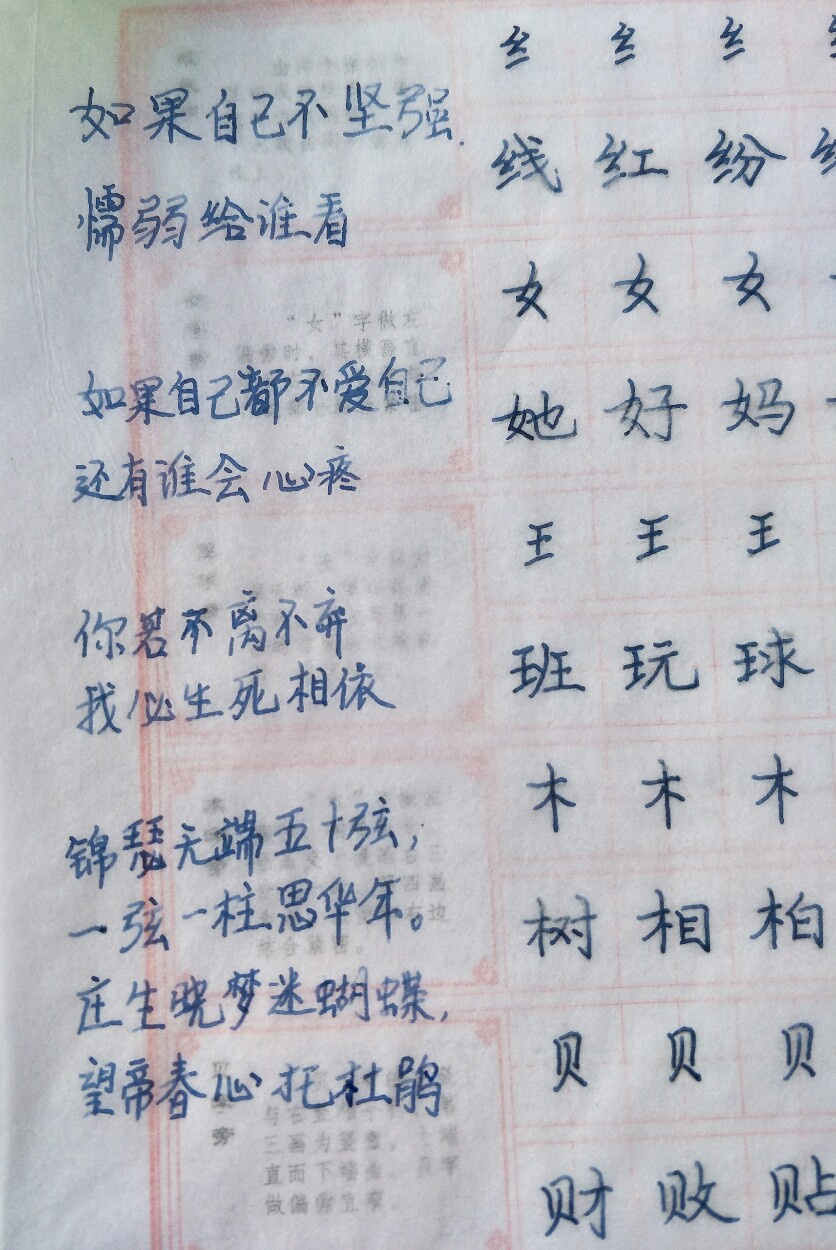 如果自己不坚强
懦弱给谁看
如果自己都不爱自己
还有谁会心疼
你若不离不弃
我必生死相依
锦瑟无端五十弦，
一弦一柱思华年。
庄生晓梦迷蝴蝶，
望帝春心托杜鹃
纟 纟 纟
线 红 纷
女 女 女
她 好 妈
王 王 王
班 玩 球
木 木 木
树 相 柏
贝 贝 贝
财 败 贴
“女”字做左
三画为竖
直而下
做偏旁宜窄。